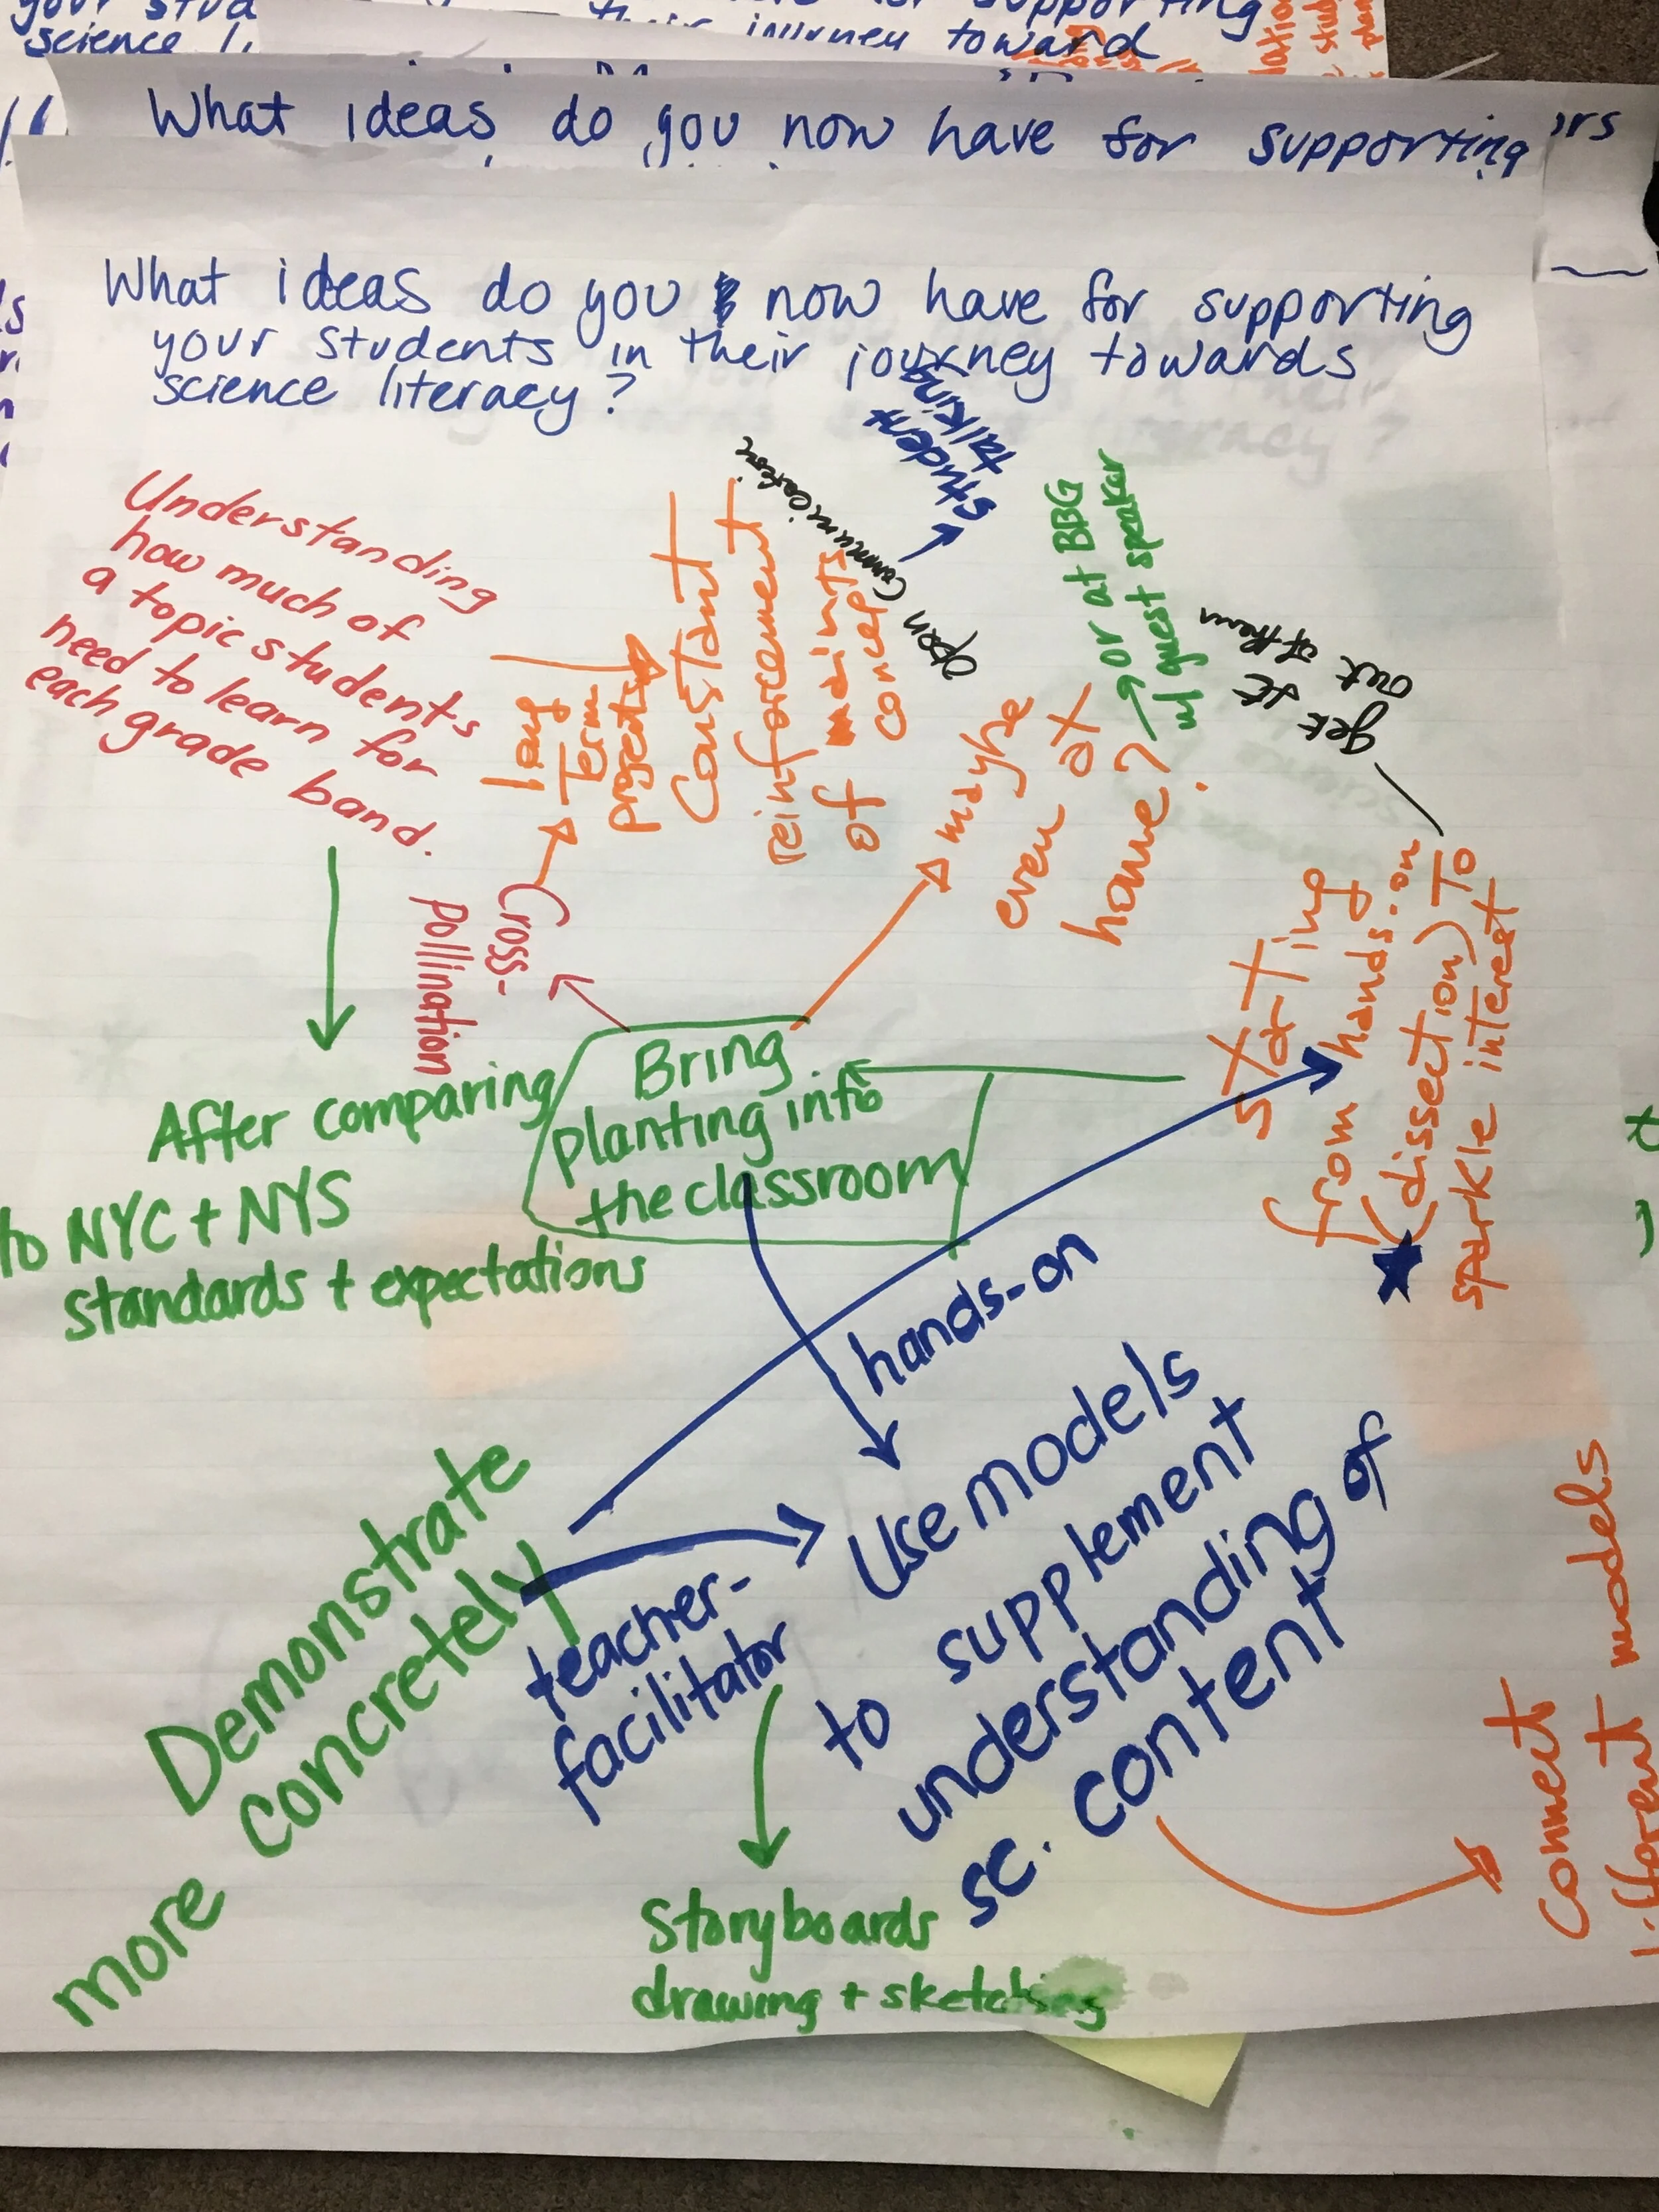 your stud
supporting
science li
their journey toward
What ideas do you now have for supporting
What ideas do you now have for supporting
your students in their journey towards
science literacy?
student
talking
open communication
Understanding
how much of
a topic students
need to learn for
each grade band.
long
term
projects
Constant
reinforcement
of
concept
or at BBG
w/ guest speaker
get it
out of them
maybe
even at
home?
Cross-
Pollination
starting
from hands-on
(dissection) To
sparkle interest
After comparing
to NYC + NYS
standards + expectations
Bring
planting into
the classroom
hands-on
Demonstrate
more concretely
teacher-
facilitator
Use models
to supplement
understanding of
sc. content
Connect
different models
Storyboards
drawing + sketching